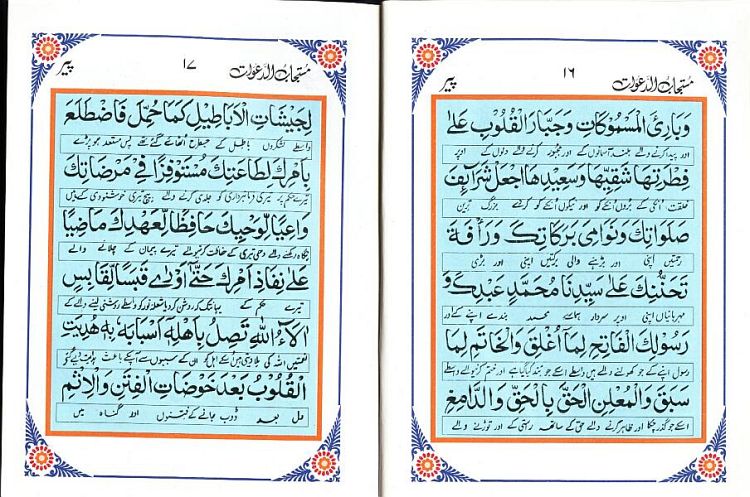 مستجاب الدعوات ١٦ پیر
وَبَارِئَ الْمَسْمُوْكَاتِ وَجَبَّارَ الْقُلُوْبِ عَلٰى
اور پیدا کرنے والے بلند آسمانوں کے اور مجبور کرنے والے دلوں کے اوپر
فِطْرَتِهَا شَقِيِّهَا وَسَعِيْدِهَا اجْعَلْ شَرَآئِفَ
خلقت انکی کے بدوں انکے کو اور نیکوں انکے کو کردے بزرگ ترین
صَلَوَاتِكَ وَنَوَامِىَ بَرَكَاتِكَ وَرَأْفَةَ
رحمتیں اپنی اور بڑہنے والی برکتیں اپنی اور بڑی
تَحَنُّنِكَ عَلٰى سَيِّدِنَا مُحَمَّدٍ عَبْدِكَ وَ
مہربانیاں اپنی اوپر سردار ہمارے محمد بندے اپنے کے اور
رَسُوْلِكَ الْفَاتِحِ لِمَا اُغْلِقَ وَالْخَاتِمِ لِمَا
رسول اپنے کے جو کھولنے والے ہیں واسطے اسکے جو بند کیا گیا ہے اور ختم کرنیوالے واسطے
سَبَقَ وَالْمُعْلِنِ الْحَقِّ بِالْحَقِّ وَالدَّامِغِ
اسکے جو گذر چکا اور ظاہر کرنے والے حق کے ساتھ راستی کے اور توڑنے والے
مستجاب الدعوات ١٧ پیر
لِجَيْشَاتِ الْاَبَاطِيْلِ كَمَا حُمِّلَ فَاضْطَلَعَ
واسطے لشکروں باطل کے جسطرح اٹھائے گئے تھے پس مستعد ہو پڑے
بِاَمْرِكَ لِطَاعَتِكَ مُسْتَوْفِزًا فِىْ مَرْضَاتِكَ
تیرے حکم پر تیری فرمانبرداری کو جلدی کرنے والے بیچ تیری خوشنودی کے ہیں
وَاعِيًا لِّوَحْيِكَ حَافِظًا لِّعَهْدِكَ مَاضِيًا
نگاہ رکھنے والے وحی تیری کے حفاظت کرنیوالے تیرے پیمان کے چلانے والے
عَلٰى نِفَاذِ اَمْرِكَ حَتّٰى اَوْرٰى قَبَسًا لِّقَابِسٍ
تیرے حکم کے یہانتک کہ روشن کردیا شعلہ نور کو واسطے روشنی لینے والے کے
اٰلَآءُ اللّٰهِ تَصِلُ بِاَهْلِهٖ اَسْبَابَهٗ بِهٖ هُدِيَتِ
نعمتیں اللہ کی ملا دیتی ہیں اسکے اہل کو ان کے سببوں سے آپکے باعث ہدایت دیئے گئے
الْقُلُوْبُ بَعْدَ خَوْضَاتِ الْفِتَنِ وَالْاِثْمِ
دل بعد ڈوب جانے کے فتنوں اور گناہ میں